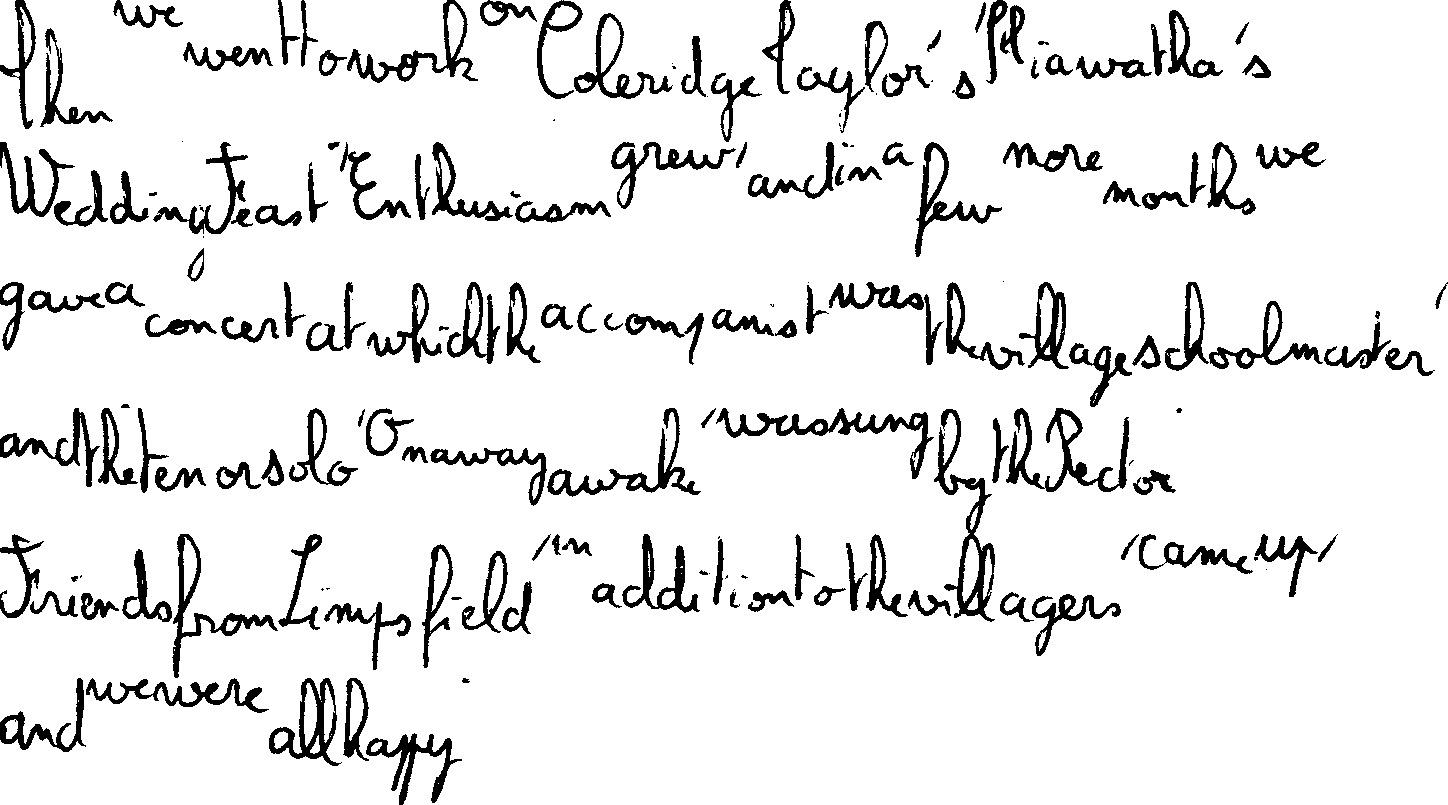 Then we went to work on Coleridge Taylor's 'Hiawatha's
Wedding Feast.' Enthusiasm grew, and in a few more months we
gave a concert at which the accompanist was the village schoolmaster,
and the tenor solo 'Onaway awake' was sung by the Rector.
Friends from Limpsfield, in addition to the villagers, came up,
and we were all happy.